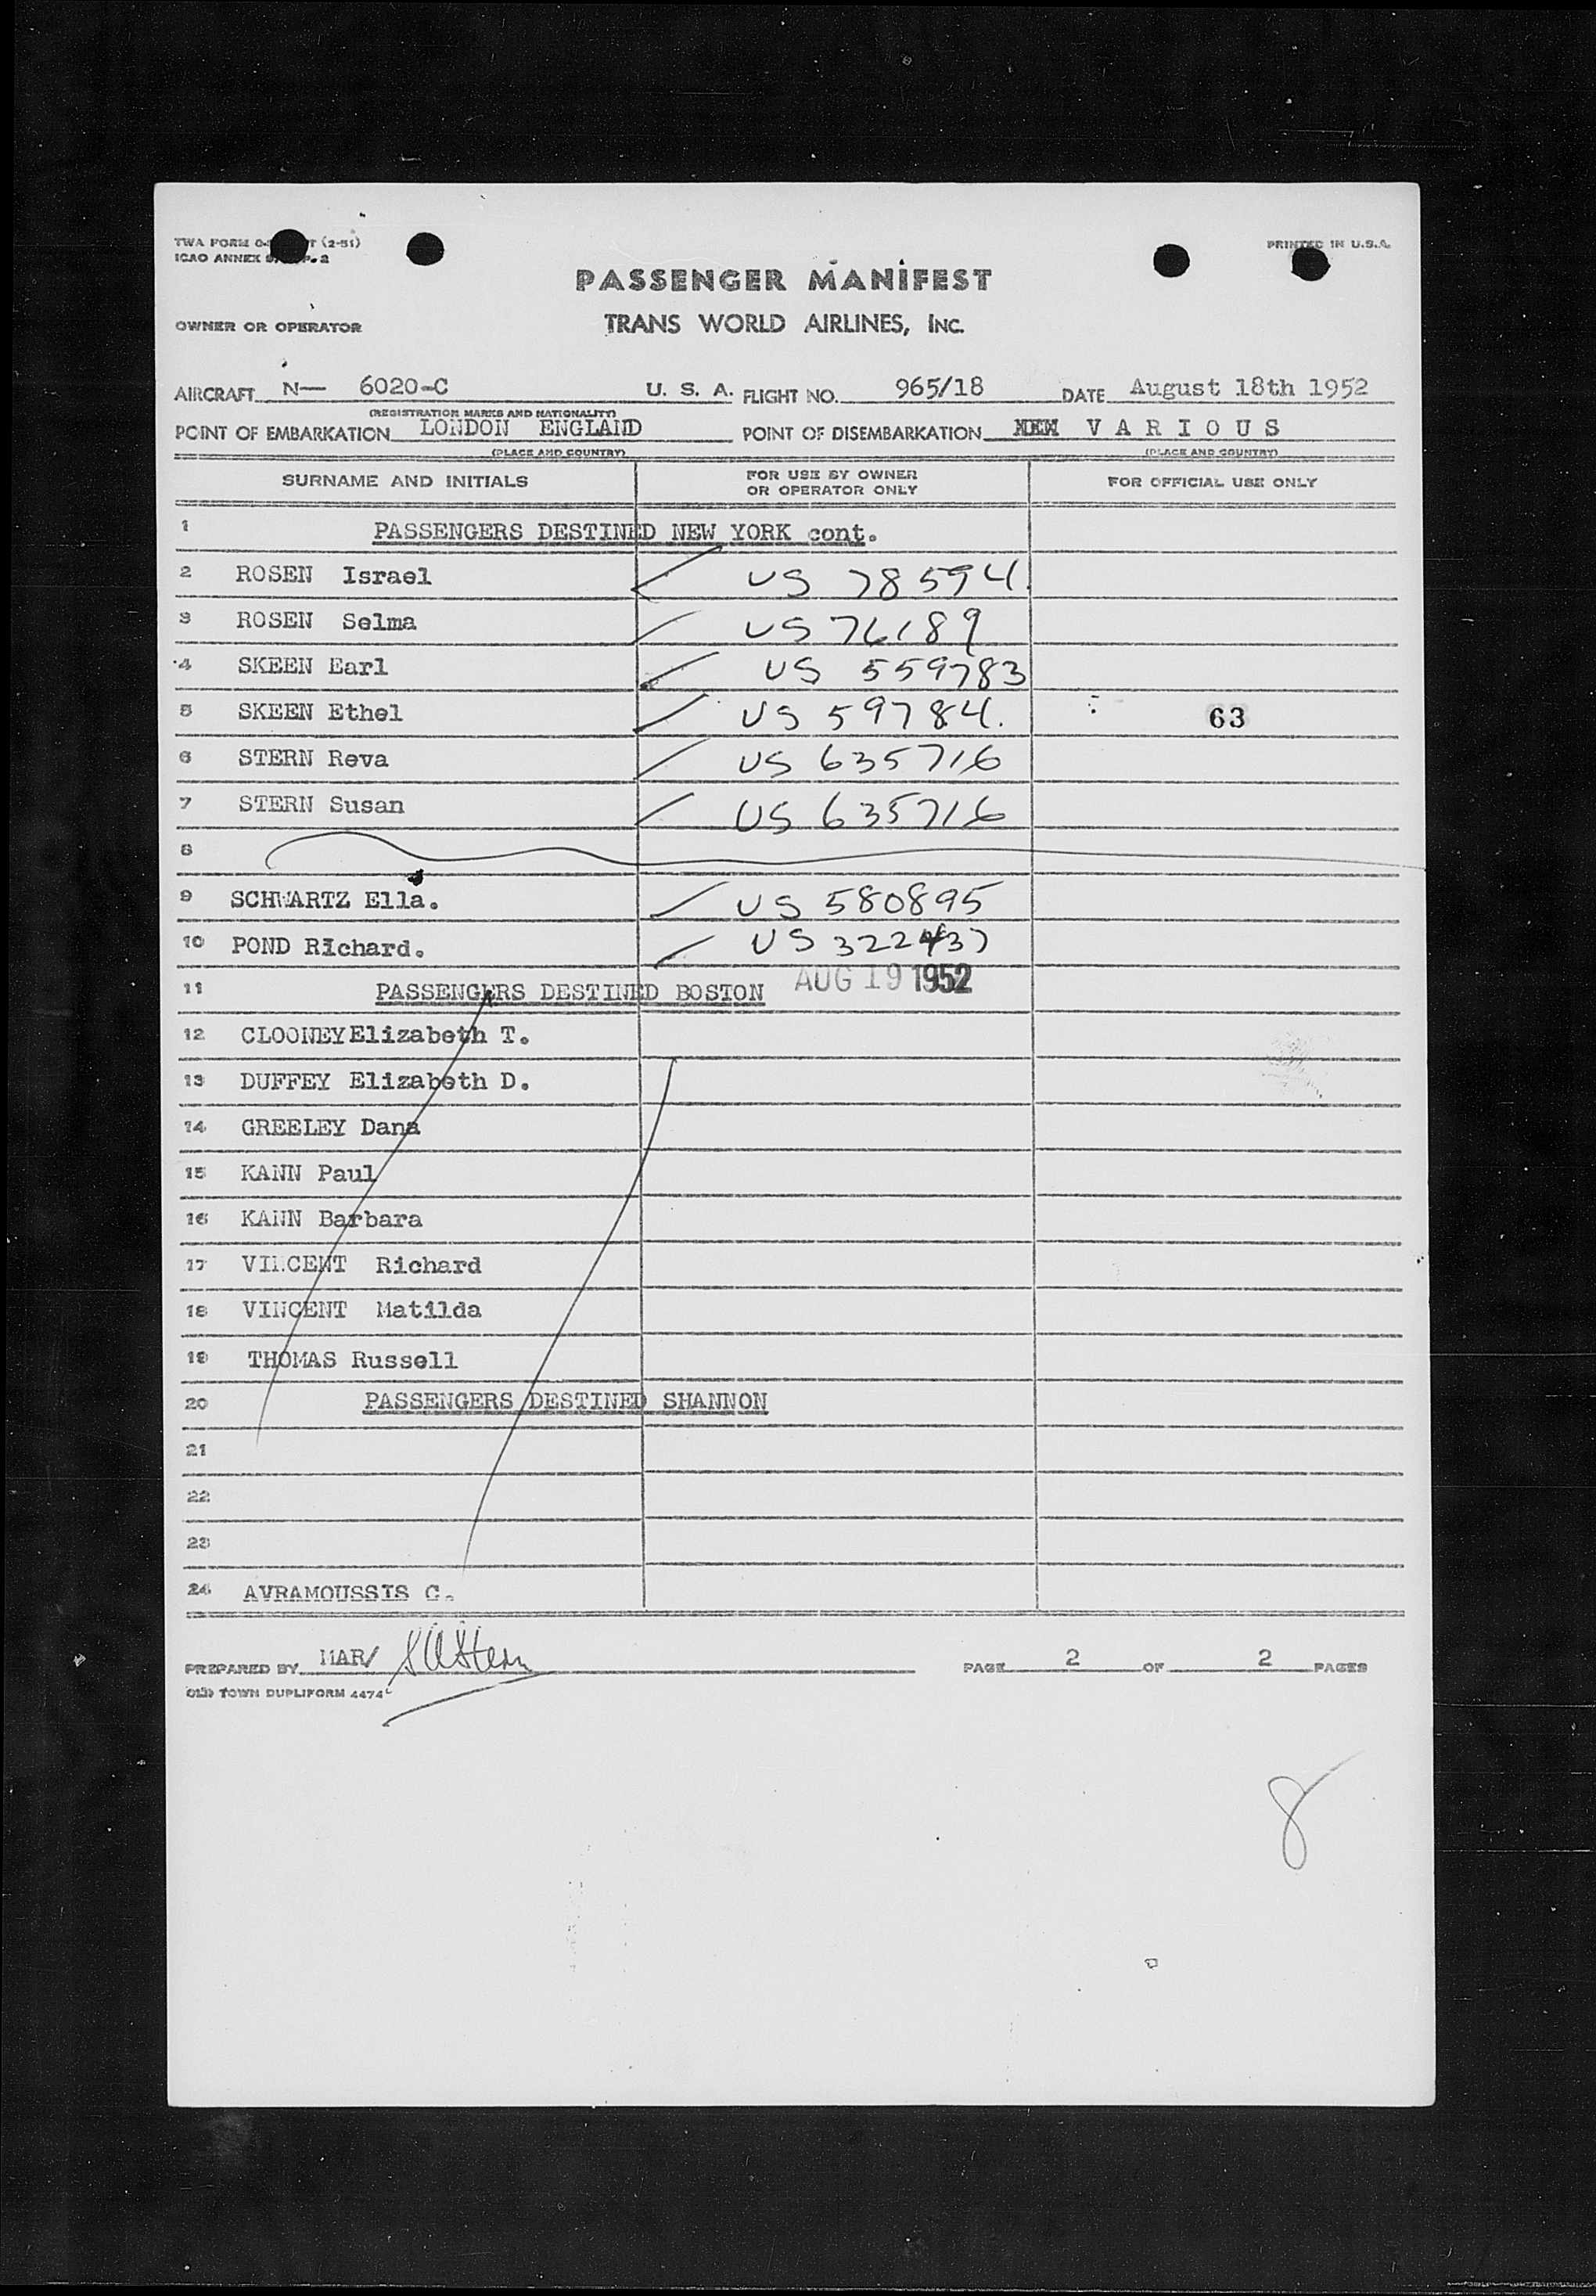 TWA FORM (2-51)
PRINTED IN U.S.A.
ICAO ANNEX
PASSENGER MANIFEST
OWNER OR OPERATOR
TRANS WORLD AIRLINES, INC.
AIRCRAFT N— 6020-C U. S. A. FLIGHT NO. 965/18 DATE August 18th 1952
(REGISTRATION MARKS AND NATIONALITY)
POINT OF EMBARKATION LONDON ENGLAND POINT OF DISEMBARKATION VARIOUS
(PLACE AND COUNTRY) (PLACE AND COUNTRY)
SURNAME AND INITIALS FOR USE BY OWNER OR OPERATOR ONLY FOR OFFICIAL USE ONLY
1 PASSENGERS DESTINED NEW YORK cont.
2 ROSEN Israel US 78594
3 ROSEN Selma US 76189
4 SKEEN Earl US 559783
5 SKEEN Ethel US 59784. 63
6 STERN Reva US 635716
7 STERN Susan US 635716
8
9 SCHWARTZ Ella. US 580895
10 POND RIchard. US 322437
AUG 19 1952
11 PASSENGERS DESTINED BOSTON
12 CLOONEY Elizabeth T.
13 DUFFEY Elizabeth D.
14 GREELEY Dana
15 KANN Paul
16 KANN Barbara
17 VINCENT Richard
18 VINCENT Matilda
19 THOMAS Russell
20 PASSENGERS DESTINED SHANNON
21
22
23
24 AVRAMOUSSIS C.
PREPARED BY MAR/ PAGE 2 OF 2 PAGES
OLD TOWN DUPLIFORM 4474
8